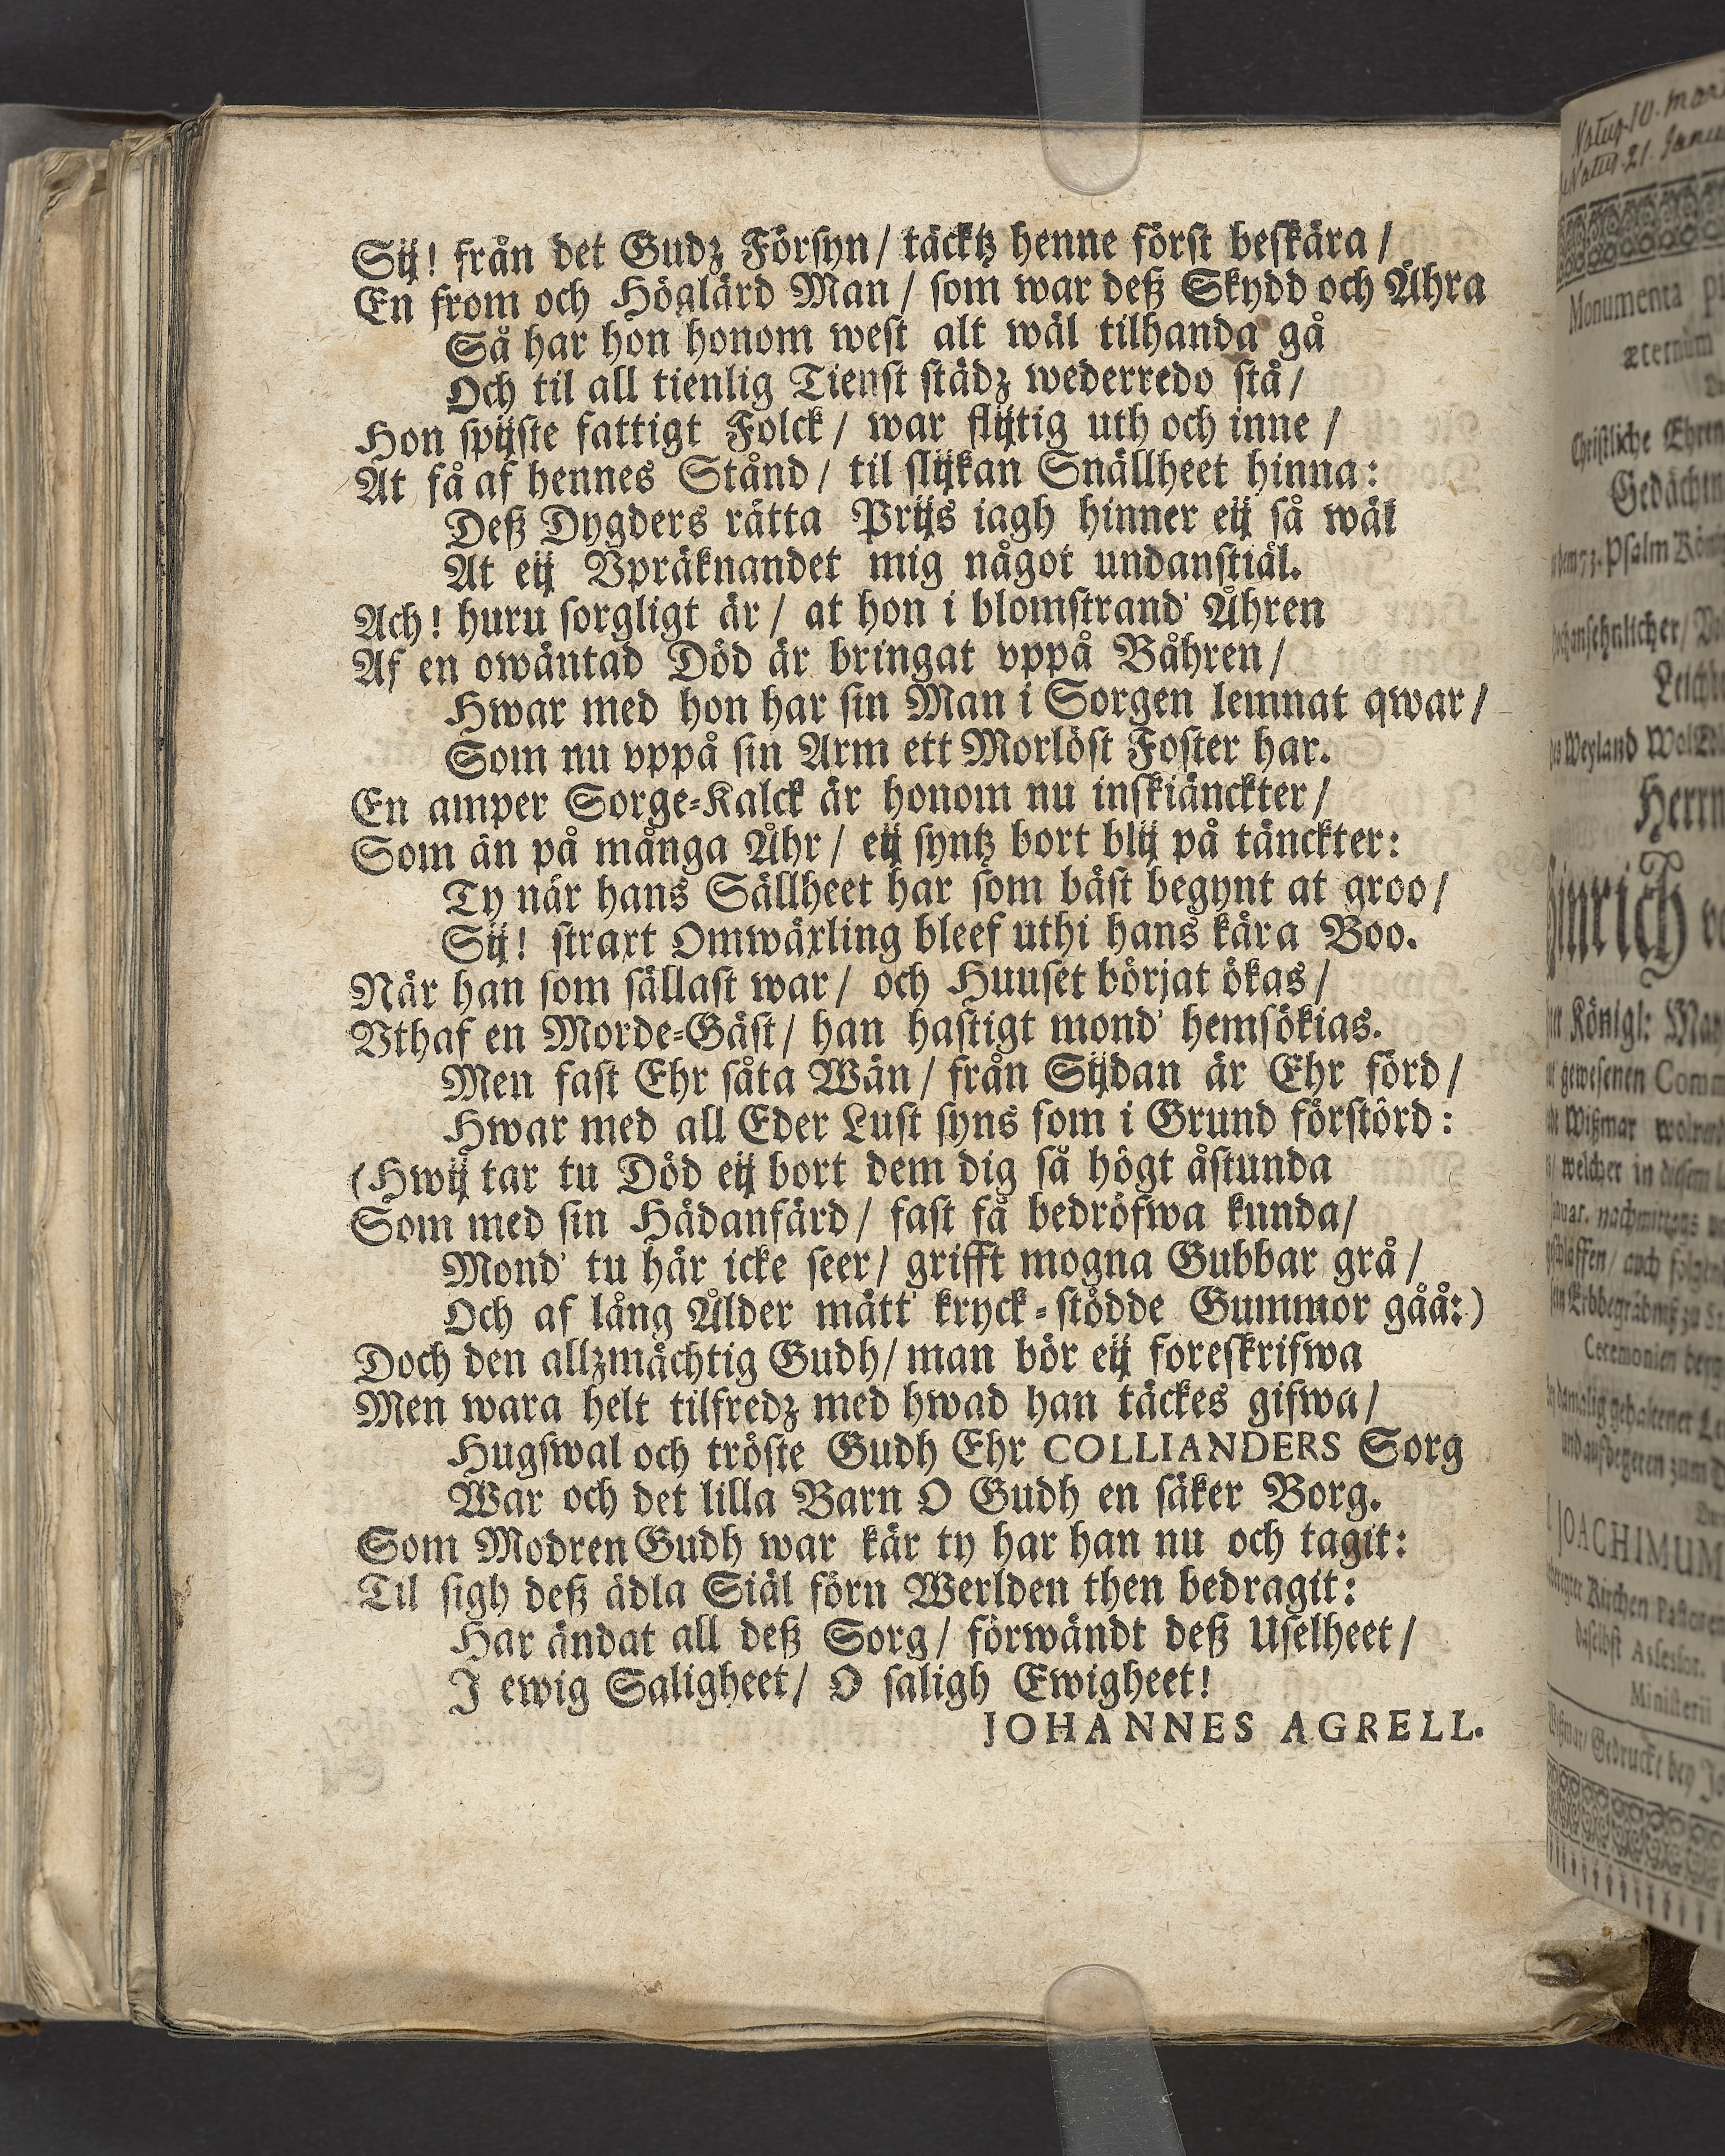 Sij! från det Gudz Försyn/ täcktz henne först beskära/
En from och Höglärd Man/ som war deß Skydd och Ähra
Så har hon honom west alt wäl tilhanda gå
Och til all tienlig Tienst städz wederredo stå/
Hon spijste fattigt Folck/ war flijtig uth och inne/
At få af hennes Stånd/ til slijkan Snällheet hinna:
Deß Dygders rätta Prijs iagh hinner eij så wäl
At eij Vpräknandet mig något undanstiäl.
Ach! huru sorgligt är/ at hon i blomstrand' Åhren
Af en owäntad Död är bringat vppå Båhren/
Hwar med hon har sin Man i Sorgen lemnat qwar/
Som nu vppå sin Arm ett Morlöst Foster har.
En amper Sorge-Kalck är honom nu inskiänckter/
Som än på många Åhr/ eij syntz bort blij på tänckter:
Ty när hans Sällheet har som bäst begynt at groo/
Sij! strart Omwäxling bleef uthi hans kära Boo.
När han som sällast war/ och Huuset börjat ökas/
Vthaf en Morde-Gäst/ han hastigt mond' hemsökias.
Men fast Ehr såta Wän/ från Sijdan är Ehr förd/
Hwar med all Eder Lust syns som i Grund förstörd:
(Hwij tar tu Död eij bort dem dig så högt åstunda
Som med sin Hädanfärd/ fast få bedröfwa kunda/
Mond' tu här icke seer/ grifft mogna Gubbar grå/
Och af lång Ålder mätt' kryck-stödde Gummor gåå:)
Doch den allzmächtig Gudh/ man bör eij foreskrifwa
Men wara helt tilfredz med hwad han täckes gifwa/
Hugswal och tröste Gudh Ehr COLLIANDERS Sorg
War och det lilla Barn O Gudh en säker Borg.
Som Modren Gudh war kär ty har han nu och tagit:
Til sigh deß ädla Siäl förn Werlden then bedragit:
Har ändat all deß Sorg/ förwändt deß Uselheet/
I ewig Saligheet/ O saligh Ewigheet!
JOHANNES AGRELL.
Natus 10.
Natus 21.
Monumenta
æternùm
Christliche
Psalm
Weyland
Herrn
Königl:
gewesenen
Wißmar
welcher in diesem
nachmittags
auch
Ceremonien
JOACHIMUM
Kirchen
daselbst Assessor.
Ministerii
Gedruckt bey